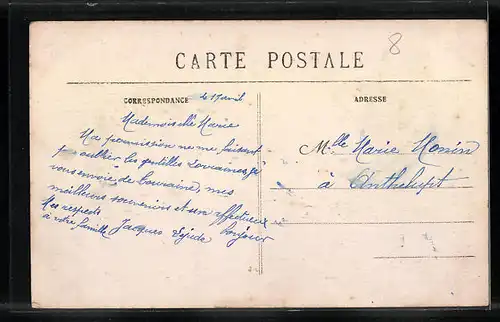 8
CARTE POSTALE
CORRESPONDANCE
ADRESSE
le 17 avril
Mademoiselle Marie
Ma permission ne me faisant
pas oublier les gentilles Lorraines, je
vous envoie de Touraine, mes
meilleurs souvenirs et un affectueux
bonjour
Mes respects
à votre famille
Jacques
Mlle Marie Monin
à Anthelupt